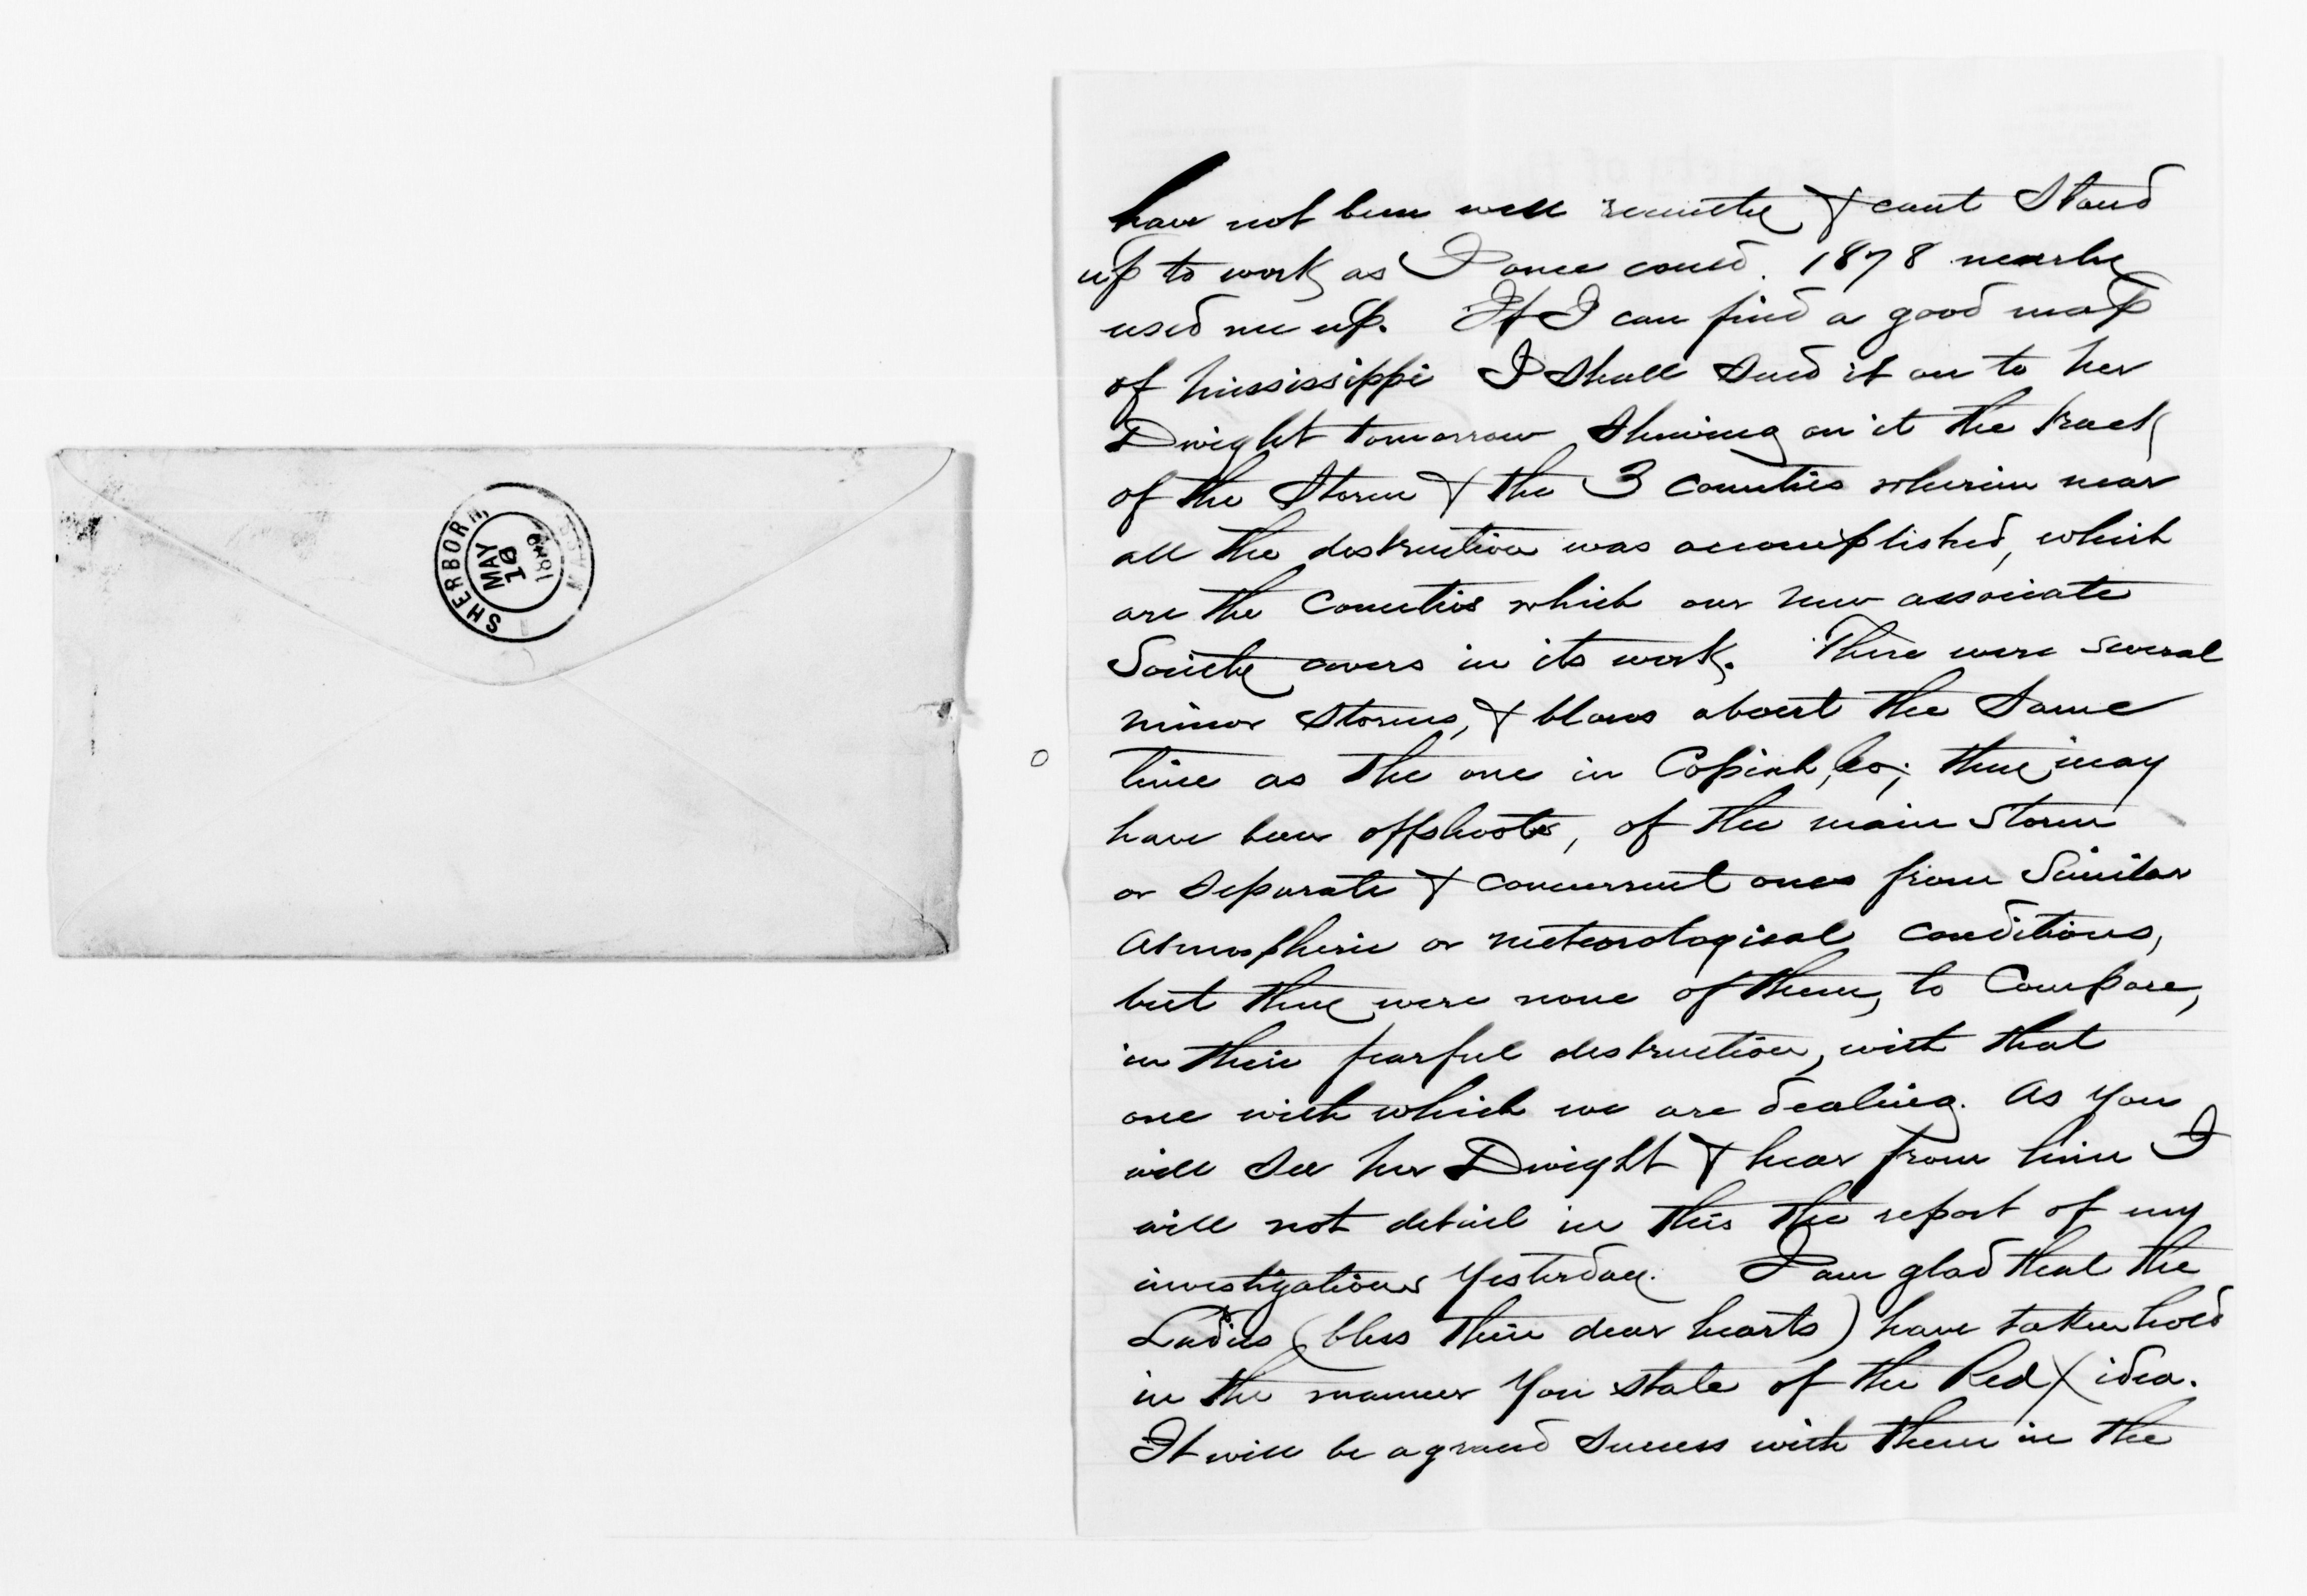 SHERBORN MASS.
MAY
10
1883
have not been well recently & cant stand
up to work as I once could. 1878 nearly
used me up. If I can find a good map
of Mississippi I shall send it on to Mr
Dwight tomorrow showing on it the track
of the storm & the 3 counties wherein near
all the destruction was accomplished, which
are the Counties which our new associate
Society covers in its work. There were several
minor storms, & blows about the same
time as the one in Copiah, Co; they may
have been offshoots, of the main storm
or separate & concurrent ones from similar
atmospheric or meteorological conditions,
but they were none of them, to compare,
in their fearful destruction, with that
one with which we are dealing. As you
will see Mr Dwight & hear from him I
will not detail in this the report of my
investigations yesterday. I am glad that the
Ladies (bless their dear hearts) have taken hold
in the manner you state of the Red X idea.
It will be a grand success with them in the